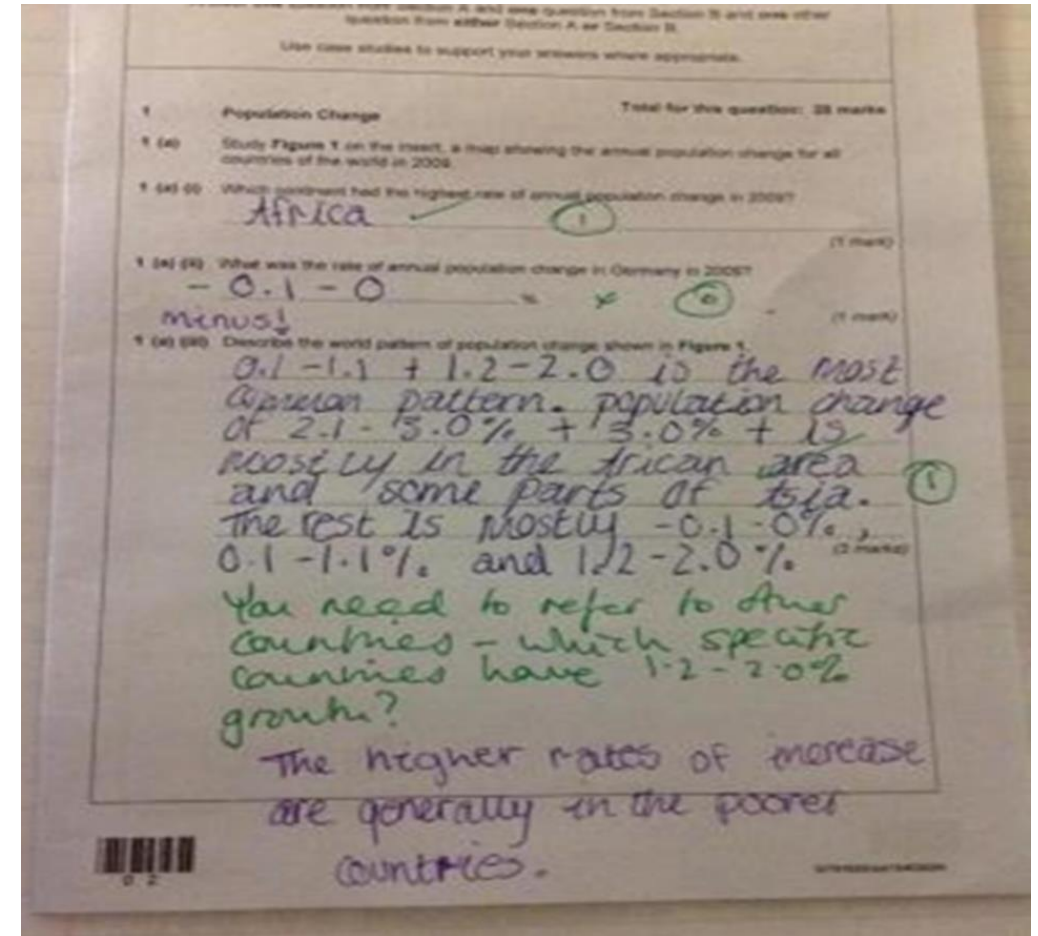 Section one question from Section A and one question from Section B and one other
question from either Section A or Section B.
Use case studies to support your answers where appropriate.
1 Population Change Total for this question: 25 marks
1 (a) Study Figure 1 on the insert, a map showing the annual population change for all
countries of the world in 2009.
1 (a) (i) Which continent had the highest rate of annual population change in 2009?
Africa ✓ 1
(1 mark)
1 (a) (ii) What was the rate of annual population change in Germany in 2009?
- 0.1 - 0 % x 0
(1 mark)
minus!
1 (a) (iii) Describe the world pattern of population change shown in Figure 1.
0.1 - 1.1 + 1.2 - 2.0 is the most
common pattern. population change
of 2.1 - 3.0% + 3.0% + is
mostly in the African area
and some parts of Asia. 1
The rest is mostly -0.1 - 0%,
0.1 - 1.1%. and 1.2 - 2.0%.
(2 marks)
You need to refer to other
countries - which specific
countries have 1.2 - 2.0%
growth?
The higher rates of increase
are generally in the poorer
countries.
0 2